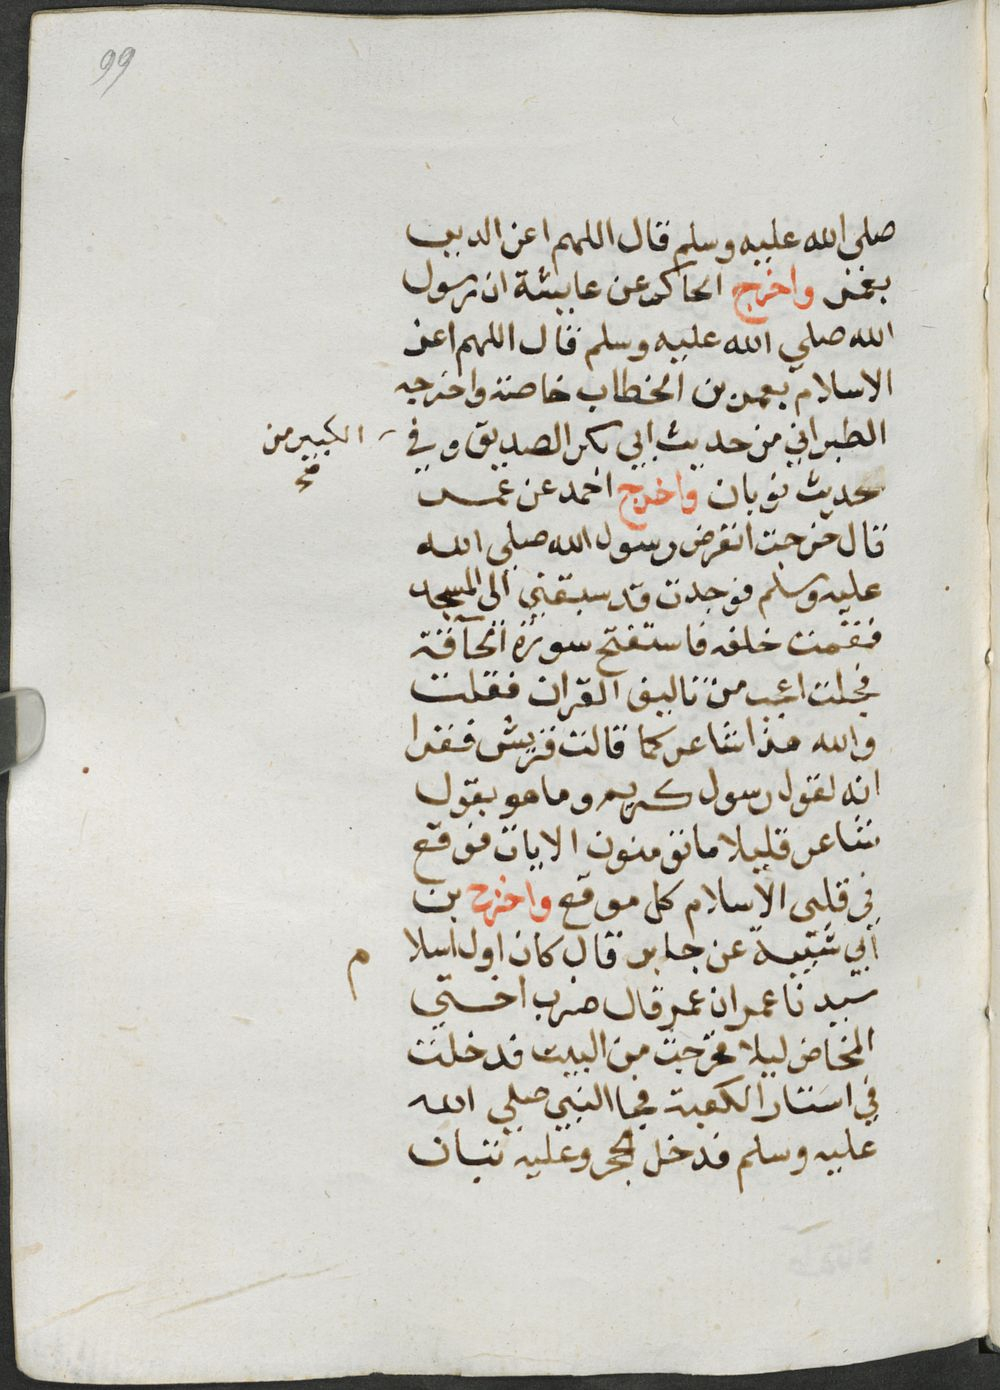 99
صلى الله عليه وسلم قال اللهم اعز الدين
بعمر واخرج الحاكم عن عايشة ان رسول
الله صلي الله عليه وسلم قال اللهم اعز
الاسلام بعمر بن الخطاب خاصة واخرجه
الطبراني من حديث ابي بكر الصديق وفي
الكبير من
صح
حديث ثوبان واخرج احمد عن عمر
قال خرجت اتعرض رسول الله صلى الله
عليه وسلم فوجدت قد سبقني الى المسجد
فقمت خلفه فاستفتح سورة الحآقة
فجعلت اعجب من تاليف القران فقلت
والله هذا شاعر كما قالت قريش فقرا
انه لقول رسول كريم وما هو بقول
شاعر قليلا ما تؤمنون الايات فوقع
في قلبى الاسلام كل موقع واخرج بن
أبي شيبة عن جابر قال كان اول اسلا
م
سيدنا عمر ان عمر قال ضرب اختي
المخاض ليلا فخرجت من البيت فدخلت
في استار الكعبة فجا النبي صلي الله
عليه وسلم فدخل الحجر وعليه تبان